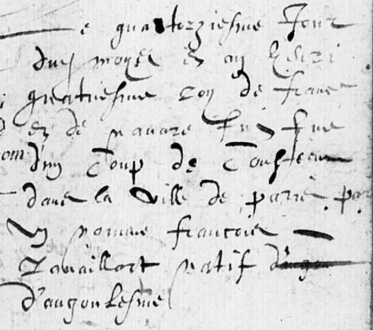 e quatorziesme Jour
du moys de may henri
quatriesme Roy de france
et de navare fut tue
d'un Coup de Cousteau
dans la ville de paris par
un nomme francois
Ravaillart natif
d'angoulesme